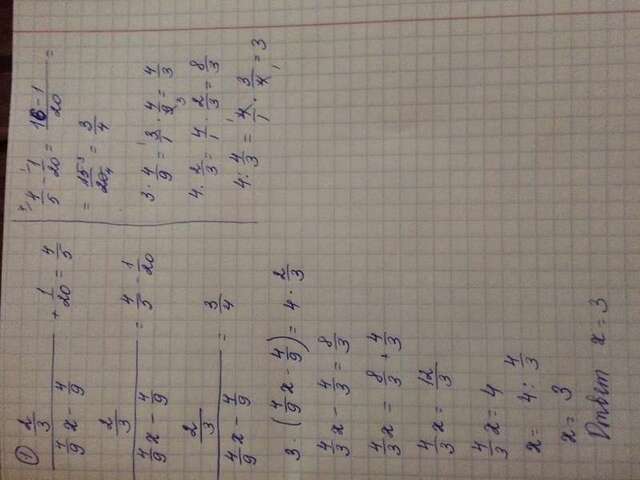 ① 2/3 / (4/9 x - 4/9) + 1/20 = 4/5
2/3 / (4/9 x - 4/9) = 4/5 - 1/20
2/3 / (4/9 x - 4/9) = 3/4
3 · (4/9 x - 4/9) = 4 · 2/3
4/3 x - 4/3 = 8/3
4/3 x = 8/3 + 4/3
4/3 x = 12/3
4/3 x = 4
x = 4 : 4/3
x = 3
Ответ x = 3
4/5 - 1/20 = 16-1/20 =
= 15/20 = 3/4
3 · 4/9 = 3/1 · 4/9 = 4/3
4 · 2/3 = 4/1 · 2/3 = 8/3
4 : 4/3 = 4/1 · 3/4 = 3